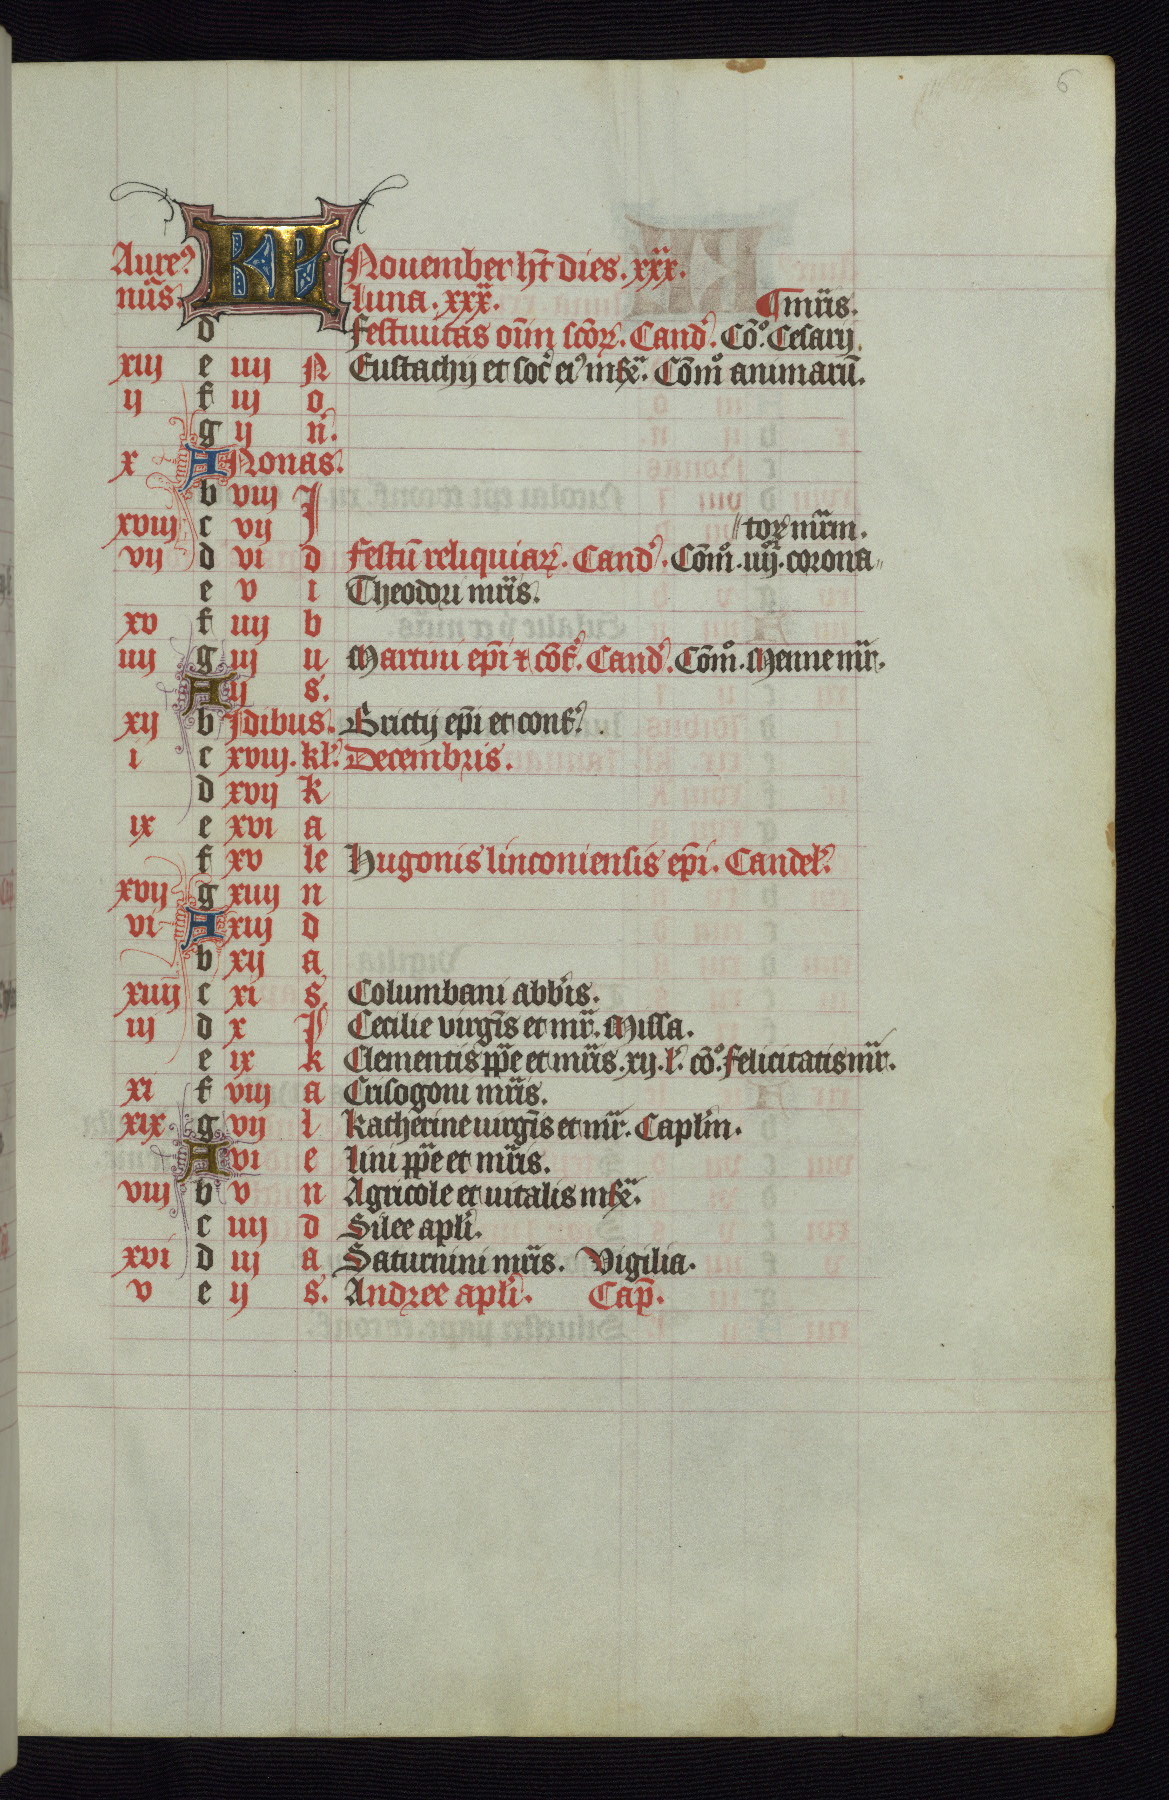 6
Aure⁹ KL Nouember ht̄ dies. xxx.
nūs. luna. xxx. ¶ mr̄is.
d festiuitas om̄ scōꝝ. Cand'. Cō°. Cesarij
xiij e iiij N Eustachij et soc' ei⁹ mr̄. Cōm° animarū.
ij f iij o
g ij n.
x A Nonas.
b viij J
xviij c vij // toꝝ mr̄m.
vij d vi d festū reliquiaꝝ. Cand'. Cōm°. iiijor. corona //
e v i Theodori mr̄is.
xv f iiij b
iiij g iij u Martini ep̄i ⁊ cōf'. Cand'. Cōm°. Menne mr̄.
A ij s.
xij b Jdibus. Brictij ep̄i et conf'.
i c xviij. kl'. Decembris.
d xvij k
ix e xvi a
f xv le Hugonis linconiensis ep̄i. Candel'.
xvij g xiiij n
vi A xiij d
b xij a
xiiij c xi s Columbani abb'is.
iij d x J Cecilie virgīs et mr̄. Missa.
e ix k Clementis pp̄e et mr̄is. xij. l'. cō°. felicitatis mr̄.
xi f viij a Crisogoni mr̄is.
xix g vij l katherine uirgīs et mr̄. Caplīn.
A vi e lini pp̄e et mr̄is.
viij b v n Agricole et uitalis mr̄.
c iiij d Silee apl'i.
xvi d iij a Saturnini mr̄is. Vigilia.
v e ij s. Andree apl'i. Cap̄.